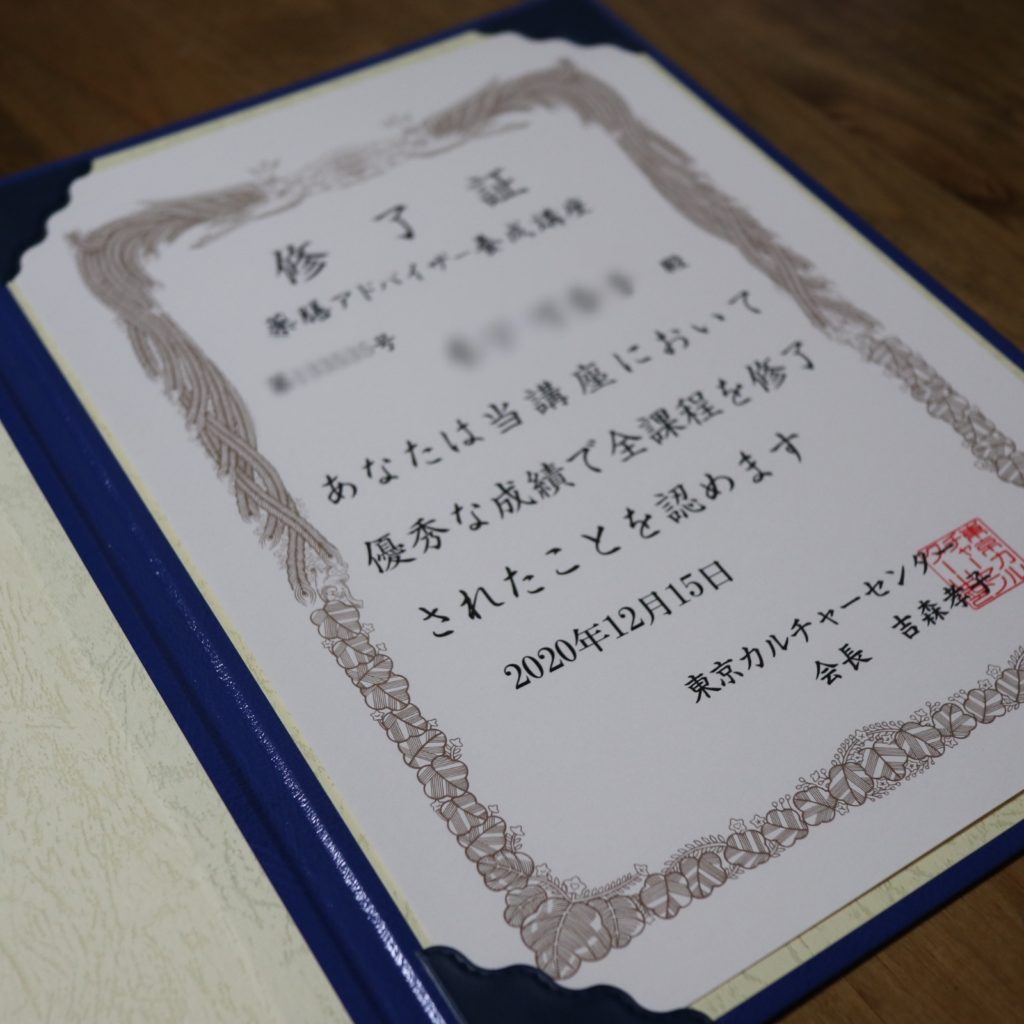 修了証
薬膳アドバイザー養成講座
殿
第 号
あなたは当講座において
優秀な成績で全課程を修了
されたことを認めます
2020年12月15日
東京カルチャーセンター
会長 吉森孝子
東京カル
チャーセ